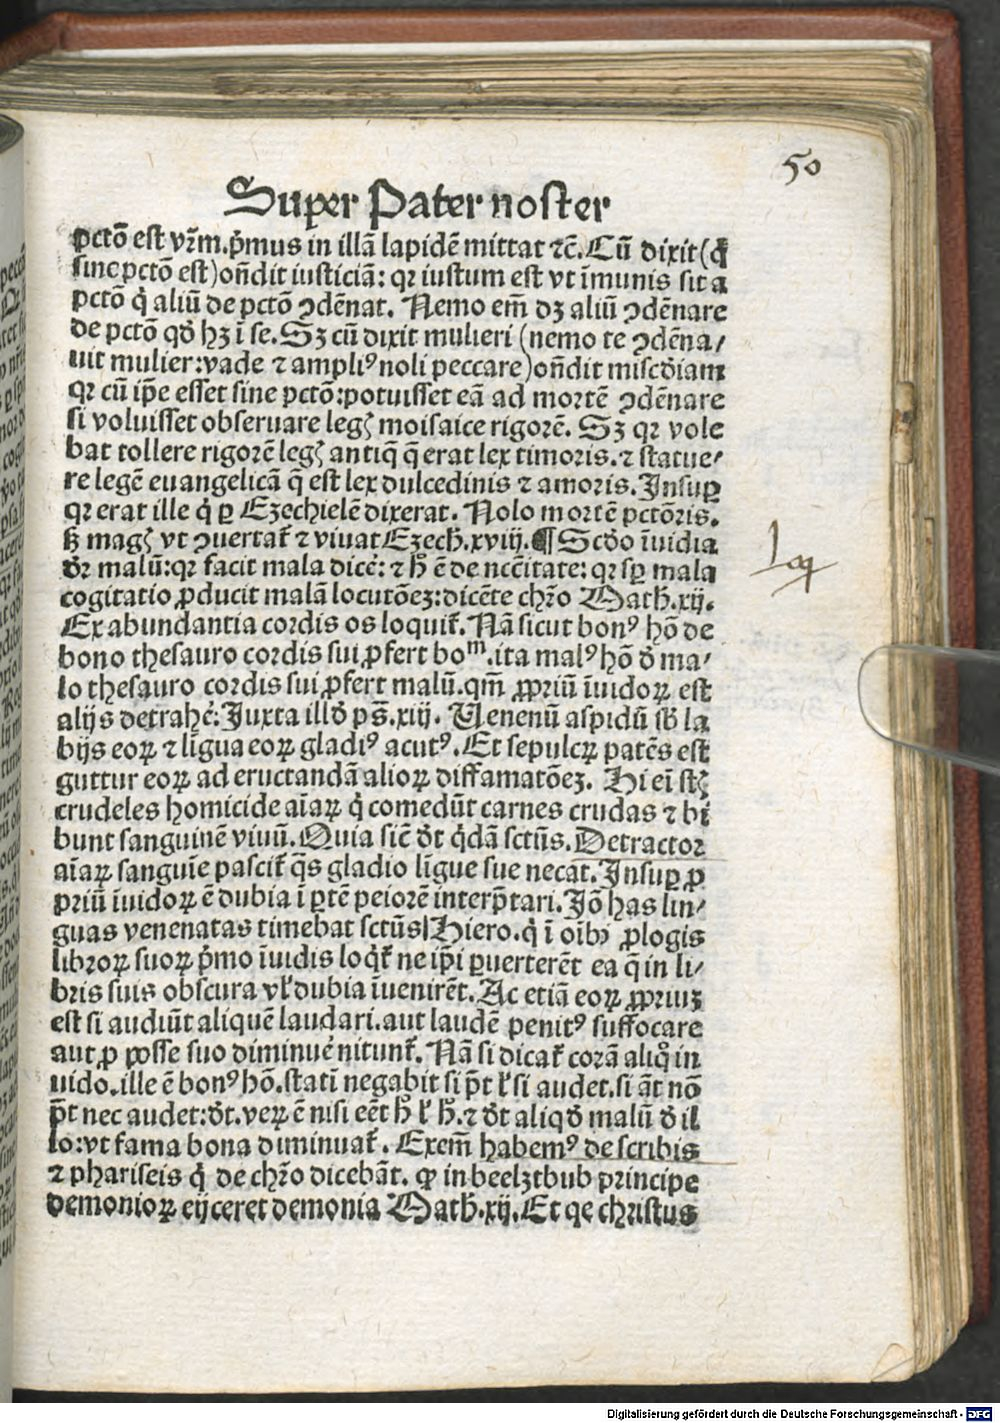 50
Super Pater noster
pctō est vr̄m. p̄mus in illā lapidē mittat ⁊c̄. Cū dixit (q̇
sine pctō est) on̄dit iusticiā: qꝛ iustum est vt īmunis sit a
pctō q̇ aliū de pctō ꝯdēnat. Nemo em̄ dꝫ aliū ꝯdēnare
de pctō qd̄ hꝫ ī se. Sꝫ cū dixit mulieri (nemo te ꝯdēna/
uit mulier: vade ⁊ ampliꝰ noli peccare) on̄dit miscd̄iam
qꝛ cū ip̄e esset sine pctō: potuisset eā ad mortē ꝯdēnare
si voluisset obseruare legꝭ moisaice rigorē. Sꝫ qꝛ vole
bat tollere rigorē legꝭ antiq̄ q̄ erat lex timoris. ⁊ statue/
re legē euangelicā q̄ est lex dulcedinis ⁊ amoris. Insuꝑ
qꝛ erat ille q̇ ꝑ Ezechielē dixerat. Nolo mortē pctōris.
sꝫ magꝭ vt ꝯuertat̄ ⁊ viuat Ezech̄. xviij. ¶ Scd̄o īuidia
dr̄ malū: qꝛ facit mala dicē: ⁊ h̄ ē de nc̄citate: qꝛ sꝑ mala
cogitatio ꝓducit malā locutōeꝫ: dicēte chr̄o Math̄. xij.
Ex abundantia cordis os loquit̄. Nā sicut bonꝰ hō de
bono thesauro cordis sui ꝓfert boᵐ. ita malꝰ hō d̄ ma/
lo thesauro cordis sui ꝓfert malū. qm̄ ꝓpriū īuidoꝝ est
alijs detrahē: Juxta illd̄ ps̄. xiij. Venenū aspidū sb̄ la
bijs eoꝝ ⁊ līgua eoꝝ gladiꝰ acutꝰ. Et sepulcꝝ patēs est
guttur eoꝝ ad eructandā alioꝝ diffamatōeꝫ. Hi ei stꝭ
crudeles homicide aīaꝝ q̇ comedūt carnes crudas ⁊ bi
bunt sanguinē viuū. Quia sic̄ dt̄ q̇dā sctūs. Detractor
aīaꝝ sanguīe pascit̄ q̄s gladio līgue sue necat. Insuꝑ ꝓ
priū īuidoꝝ ē dubia ī ꝑtē peiorē interp̄tari. Jō has lin/
guas venenatas timebat sctūs Hiero. q̇ ī oībꝰ ꝓlogis
libroꝝ suoꝝ p̄mo īuidis loqt̄ ne ip̄i ꝑuerterēt ea q̄ in li/
bris suis obscura vl̄ dubia īuenirēt. Ac etiā eoꝝ ꝓpriuꝫ
est si audiūt aliquē laudari. aut laudē penitꝰ suffocare
aut ꝓ posse suo diminuē nitunt̄. Nā si dicat̄ corā aliqͦ in
uido. ille ē bonꝰ hō. statī negabit si pt̄ l̄ si audet. si āt nō
pt̄ nec audet: dt̄. veꝝ ē nisi eēt h̄ l̄ h̄. ⁊ dt̄ aliqd̄ malū d̄ il
lo: vt fama bona diminuat̄. Exem̄ habemꝰ de scribis
⁊ phariseis q̇ de chr̄o dicebāt. ꝙ in beelztbub principe
demonioꝝ eijceret demonia Math̄. xij. Et qe christus
Digitalisierung gefördert durch die Deutsche Forschungsgemeinschaft - DFG